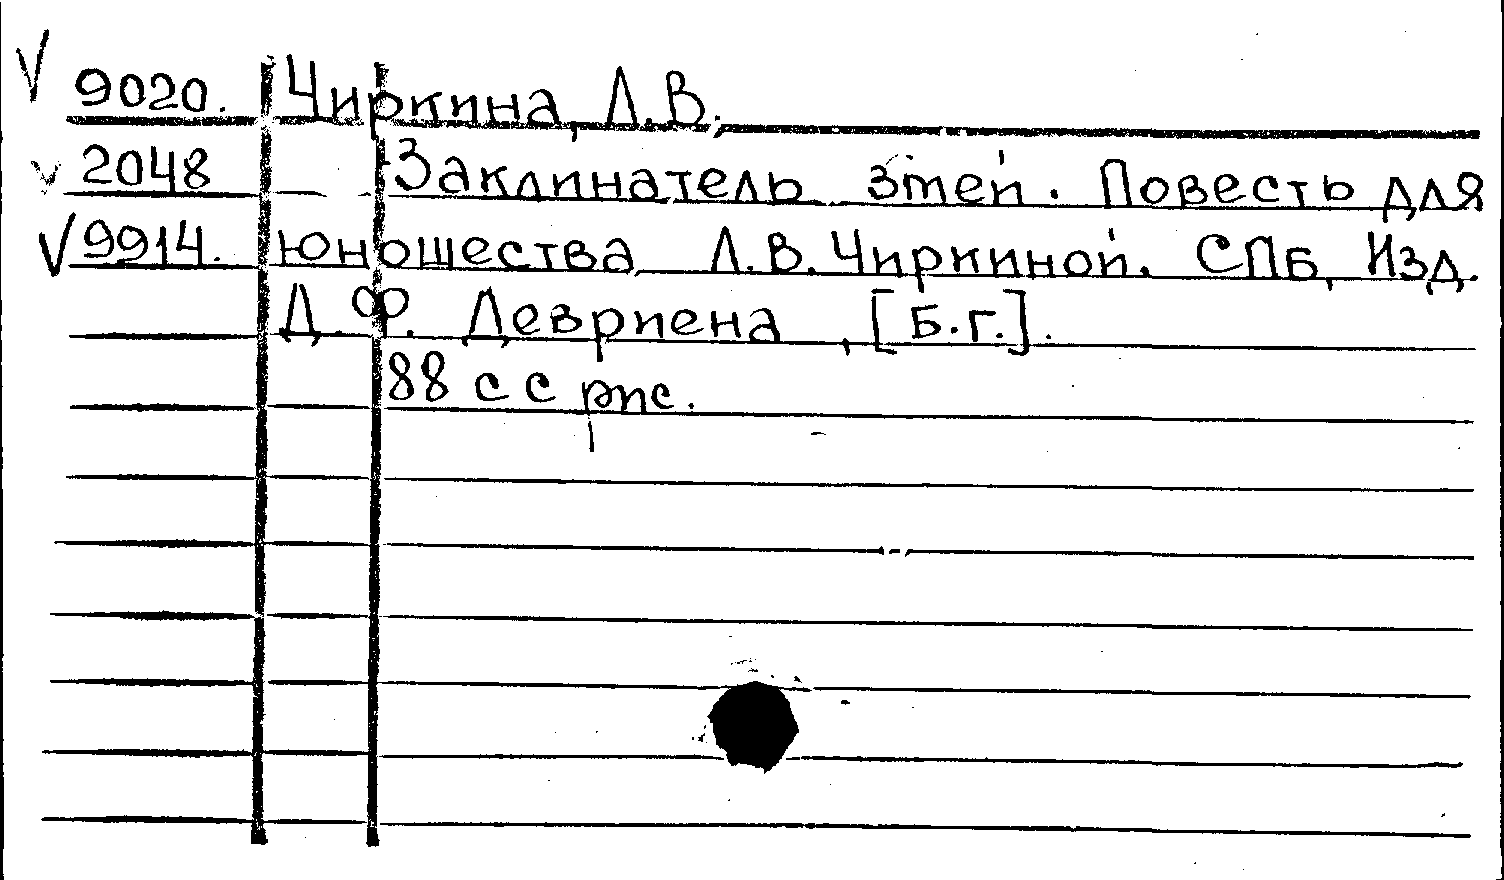 V 9020. Чиркина, Л.В.
V 2048 Заклинатель змей. Повесть для
V 9914. юношества Л.В. Чиркиной. СПб, Изд.
Д.Ф. Девриена, [Б.г.].
88 с с рис.